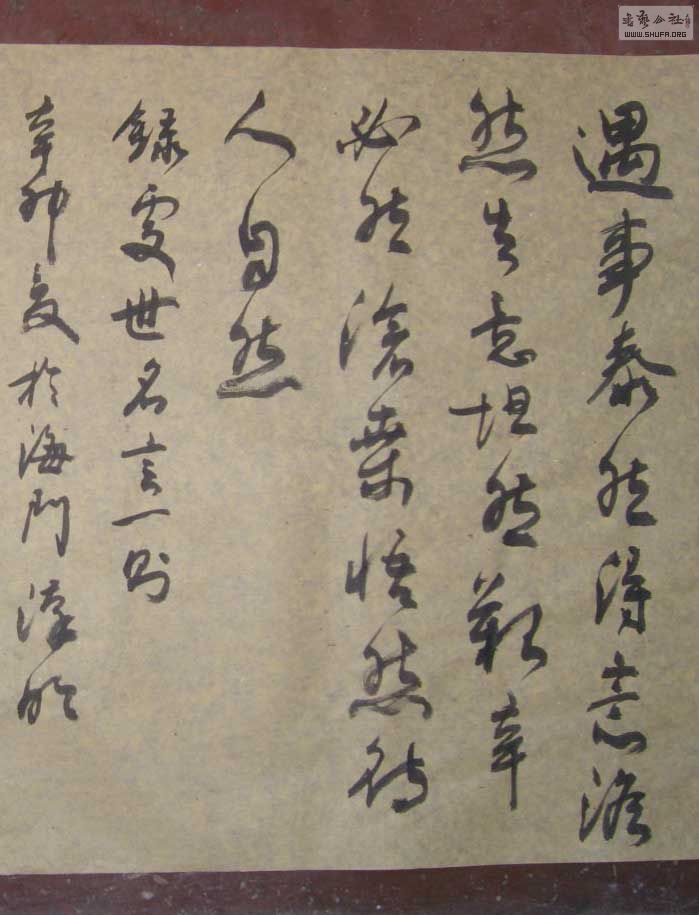 遇事泰然得意澹
然失意坦然艱辛
必然滄桑悟然待
人自然
錄處世名言一則
辛卯夏於海門
书艺公社
WWW.SHUFA.ORG